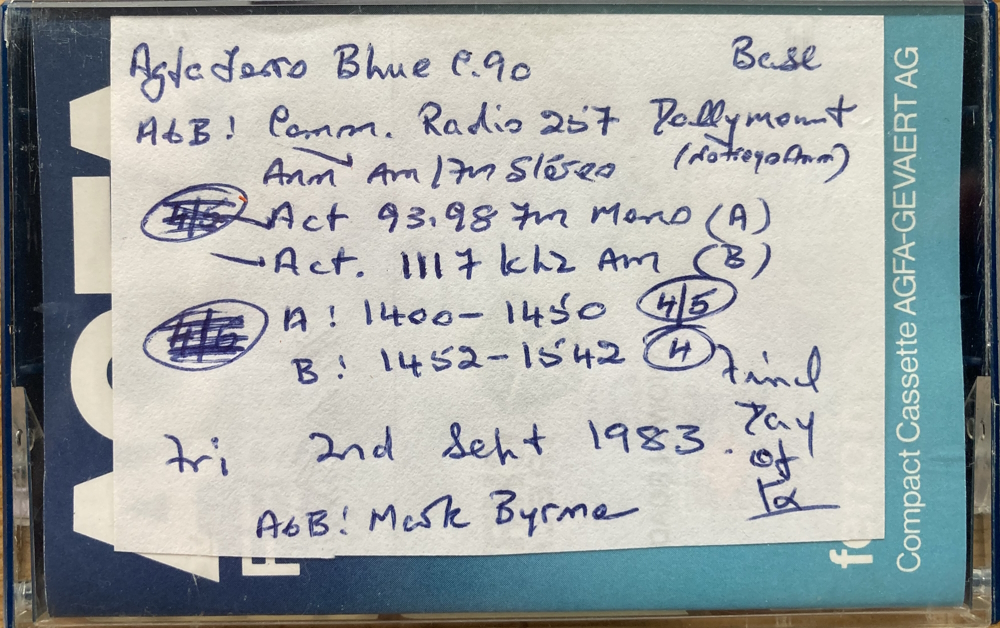 Agfa Ferro Blue C.90 Base
A&B: Comm. Radio 257 Dallymount
Ann Am/Fm Stereo
Act 93.98 Fm Mono (A)
Act. 1117 khz Am (B)
A: 1400 - 1450 4/5
B: 1452 - 1542 4
Final
Day
of
Tx
Fri 2nd Sept 1983.
A&B: Mark Byrne
Compact Cassette AGFA-GEVAERT AG